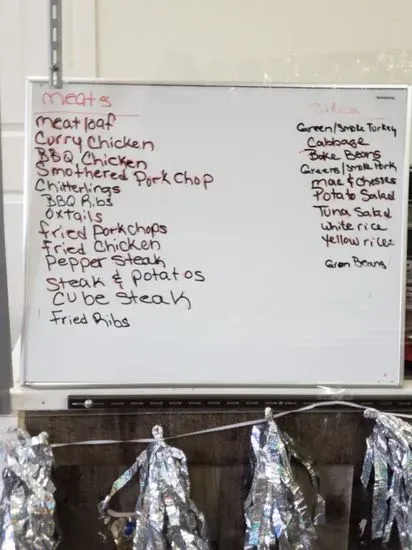 meats
meatloaf
Curry Chicken
BBQ Chicken
Smothered Pork Chop
Chitterlings
BBQ Ribs
Oxtails
fried Porkchops
fried Chicken
Pepper Steak
Steak & Potatos
Cube Steak
Fried Ribs
Sides
Green/Smoke Turkey
Cabbage
Bake Beans
Greens/Smoke Pork
mac & Cheeses
Potato Salad
Tuna Salad
White rice
Yellow rice
Green Beans